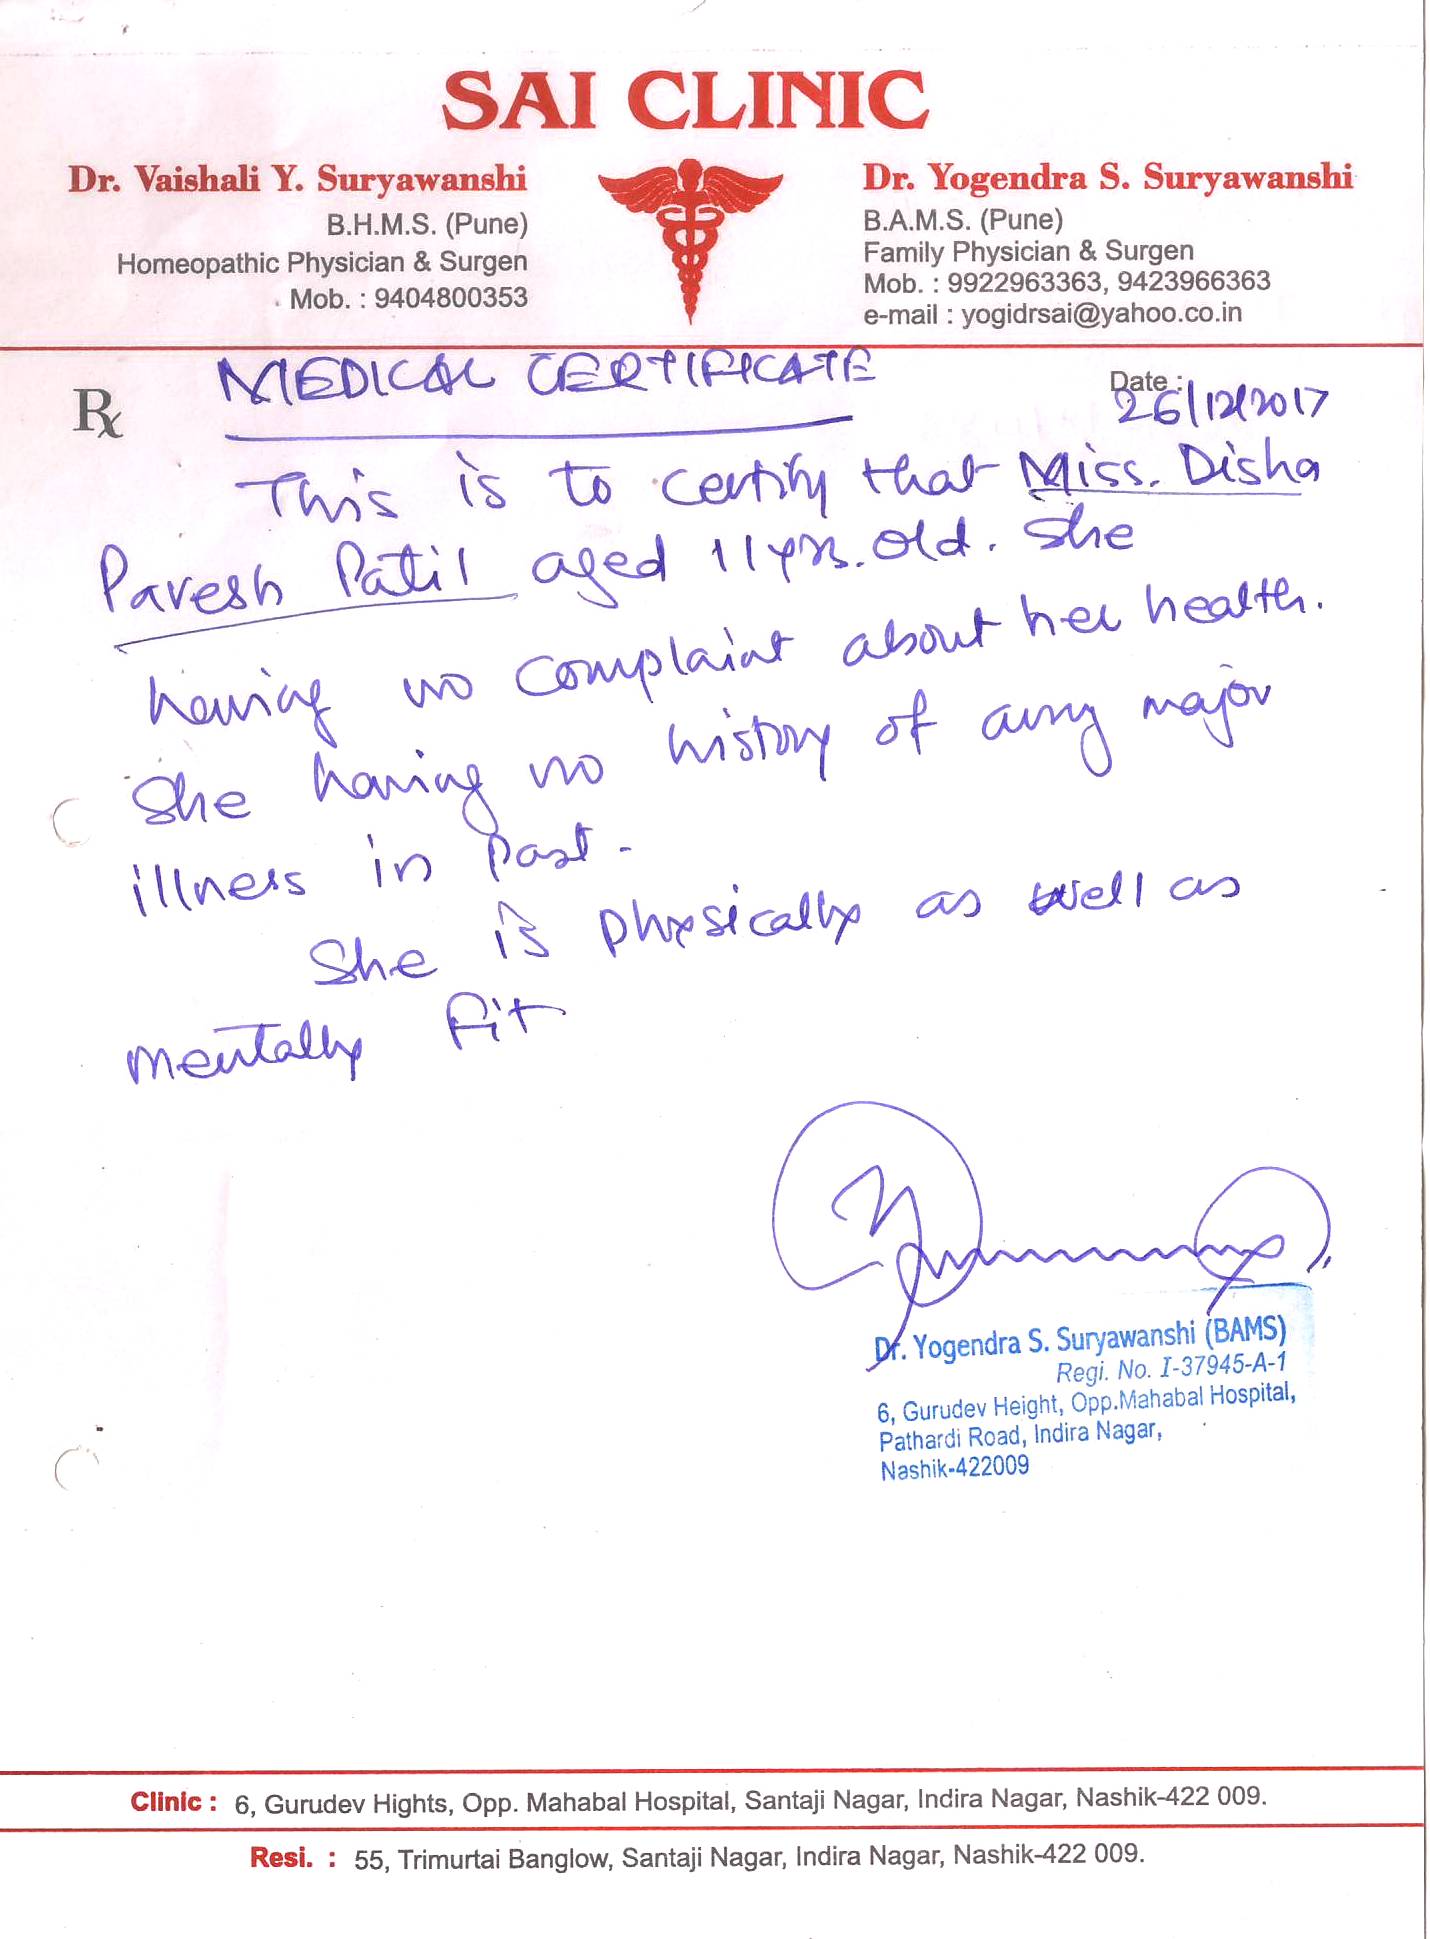 SAI CLINIC
Dr. Vaishali Y. Suryawanshi
B.H.M.S. (Pune)
Homeopathic Physician & Surgen
Mob. : 9404800353
Dr. Yogendra S. Suryawanshi
B.A.M.S. (Pune)
Family Physician & Surgen
Mob. : 9922963363, 9423966363
e-mail : yogidrsai@yahoo.co.in
Rx
MEDICAL CERTIFICATE
Date : 26/12/2017
This is to certify that Miss. Disha
Paresh Patil aged 11 yrs. old. She
having no complaint about her health.
She having no history of any major
illness in past.
She is physically as well as
mentally fit
Dr. Yogendra S. Suryawanshi (BAMS)
Regi. No. I-37945-A-1
6, Gurudev Height, Opp.Mahabal Hospital,
Pathardi Road, Indira Nagar,
Nashik-422009
Clinic : 6, Gurudev Hights, Opp. Mahabal Hospital, Santaji Nagar, Indira Nagar, Nashik-422 009.
Resi. : 55, Trimurtai Banglow, Santaji Nagar, Indira Nagar, Nashik-422 009.